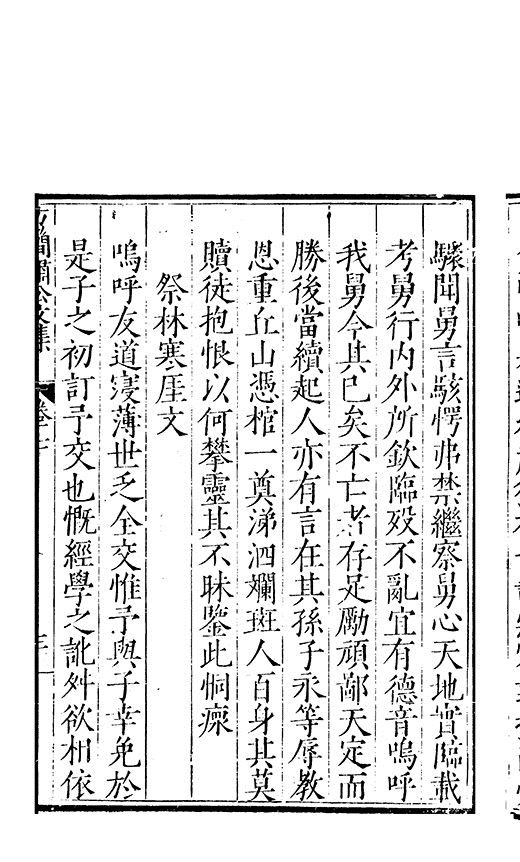 驟聞舅言駭愕弗禁繼察舅心天地實臨載
考舅行内外所欽臨歿不亂宜有德音嗚呼
我舅今其已矣不亡者存足勵頑鄙天定而
勝後當續起人亦有言在其孫子永等辱教
恩重丘山憑棺一奠涕泗斕斑人百身其莫
贖徒抱恨以何攀靈其不昧鑒此恫瘝
祭林寒厓文
嗚呼友道寖薄世乏全交惟予與子幸免於
是子之初訂予交也慨經學之訛舛欲相依
簡肅公文集